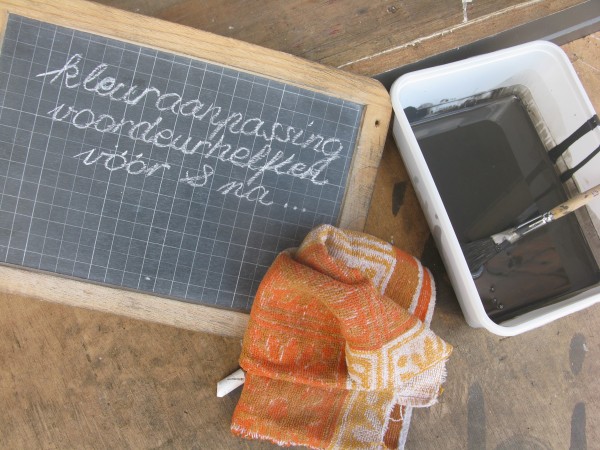 kleuraanpassing
voordeurhelften
vóór & na ...